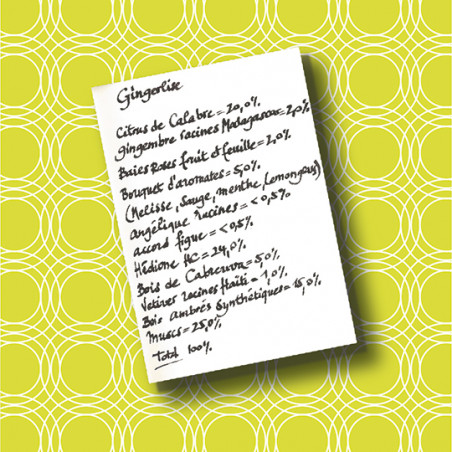 Gingerlise
Citrus de Calabre = 20,0%
gingembre racines Madagascar = 2,0%
Baies Roses fruit et feuille = 2,0%
Bouquet d'aromates = 5,0%
(Melisse, Sauge, menthe, Lemongrass)
angélique racines = < 0,5%
accord figue = < 0,5%
Hédione HC = 24,0%
Bois de Cabreuva = 5,0%
Vetiver racines Haïti = 1,0%
Bois ambrés Synthétiques = 15,0%
Muscs = 25,0%
Total 100%